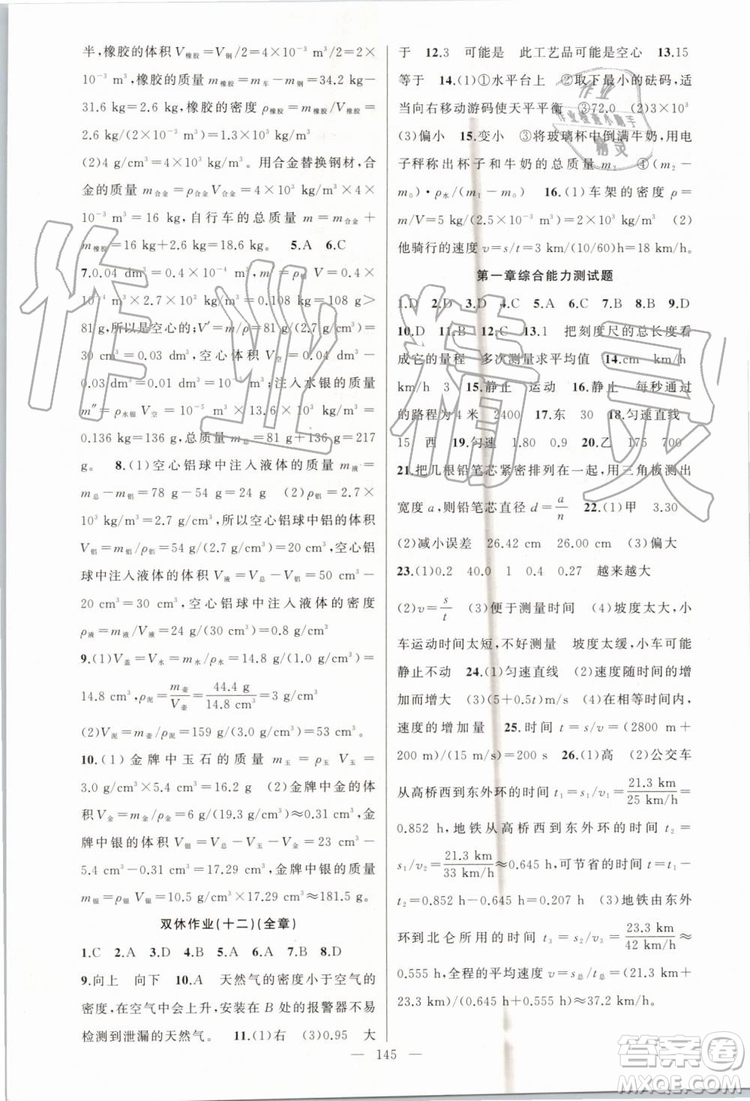 半,橡胶的体积 V橡胶=V钢/2=4×10⁻³ m³/2=2
×10⁻³ m³,橡胶的质量 m橡胶=m车-m钢=34.2 kg-
31.6 kg=2.6 kg,橡胶的密度 ρ橡胶=m橡胶/V橡胶=
2.6 kg/(2×10⁻³ m³)=1.3×10³ kg/m³
(2)4×10⁻³ m³)=16 kg。用合金替换钢材,合
金的质量 m合金=ρ合金V合金=4×10³ kg/m³×4×
10⁻³ m³=16 kg,自行车的总质量 m=m合金+
m橡胶=16 kg+2.6 kg=18.6 kg。 5.A 6.C
7.0.04 dm³×10⁻³
m³×2.7×10³ kg/m³=0.108 kg=108 g>
81 g;所以是空心的;V′=m/ρ铝=81 g/(2.7
g/cm³)=30 cm³=0.03 dm³,空心体积 V空=0.04
dm³-0.03 dm³=0.01 dm³;注入水银的质量
m″=ρ水银V空=10⁻⁵ m³×13.6×10³ kg/m³=
0.136 kg=136 g,总质量 m总=81 g+136 g=217
g。 8.(1)空心铝球中注入液体的质量 m液=
m总-m铝=78 g-54 g=24 g (2)因为 ρ铝=2.7×
10³ kg/m³=2.7 g/cm³,所以空心铝球中铝的体积
V铝=m铝/ρ铝=54 g/(2.7 g/cm³)=20 cm³,空心
铝球中注入液体的体积 V液=V总-V铝=50 cm³-
20 cm³=30 cm³,空心铝球中注入液体的密度
ρ液=m液/V液=24 g/(30 cm³)=0.8 g/cm³
9.(1)V盖=V水=m水/ρ水=14.8 g/(1.0 g/cm³)=
14.8 cm³,ρ泥=m壶/V壶=44.4 g/14.8 cm³=3 g/cm³
(2)V泥=m泥/ρ泥=159 g/(3.0 g/cm³)=53 cm³
10.(1)金牌中玉石的质量 m玉=ρ玉V玉=3.0
g/cm³×5.4 cm³=16.2 g (2)金牌中金的体积
V金=m金/ρ金=6 g/(19.3 g/cm³)≈0.31 cm³,
金牌中银的体积 V银=V总-V玉-V金=23 cm³-
5.4 cm³-0.31 cm³=17.29 cm³,金牌中银的质量
m银=ρ银V银=10.5 g/cm³×17.29 cm³≈181.5 g。
双休作业(十二)(全章)
1.C 2.A 3.A 4.B 5.C 6.A 7.B 8.D
9.向上 向下 10.A 天然气的密度小于空气的
密度,在空气中会上升,安装在 B 处的报警器不易
检测到泄漏的天然气。 11.(1)右 (3)0.95 大
于 12.3 可能是 此工艺品可能是空心 13.15
等于 14.(1)①水平台上 ②取下最小的砝码,适
当向右移动游码使天平平衡 ③72.0 (2)3×10³
(3)偏小 15.变小 ③将玻璃杯中倒满牛奶,用电
子秤称出杯子和牛奶的总质量 m₂ ④(m₂-
m₀)·ρ水/(m₁-m₀) 16.(1)车架的密度 ρ=
m/V=5 kg/(2.5×10⁻³ m³)=2×10³ kg/m³ (2)
他骑行的速度 v=s/t=3 km/(10/60)h=18 km/h。
第一章综合能力测试题
1.D 2.D 3.D 4.C 5.A 6.D 7.B 8.B 9.D
10.D 11.B 12.C 13.1 把刻度尺的总长度看
成它的量程 多次测量求平均值 14.cm km/h
km/h 3 静止 运动 16.静止 每秒通过
的路程为 4 米 2400 17.东 东 18.匀速直线
15 西 19.匀速 1.80 20.乙 175 700
21.把几根铅笔芯紧密排列在一起,用三角板测出
宽度 a,则铅笔芯直径 d=a/n 22.(1)甲 3.30
(2)减小误差 26.42 cm 26.00 cm (3)偏大
23.(1)0.2 40.0 1 0.4 0.27 越来越大
(2)v=s/t (3)便于测量时间 (4)坡度太大,小
车运动时间太短,不好测量 坡度太缓,小车可能
静止不动 24.(1)匀速直线 (2)速度随时间的增
加而增大 (3)v=5t+6 (4)在相等的时间内,
速度的增加量 25.时间 t=s/v=(2800 m+
200 m)/(15 m/s)=200 s 26.(1)高 (2)公交车
从高桥西到东外环的时间 t₁=s₁/v₁=21.3 km/25 km/h=
0.852 h,地铁从高桥西到东外环的时间 t₂=
s₁/v₂=21.3 km/33 km/h≈0.645 h,可节省的时间
t=t₁-t₂=0.852 h-0.645 h=0.207 h (3)地铁由东外
环到北仑所用的时间 t₃=s₃/v₃=23.3 km/42 km/h≈
0.555 h,全程的平均速度 v=s总/t总=(21.3 km+
23.3 km)/(0.645 h+0.555 h)≈37.2 km/h。
145
作业精灵
答案圈
MXQE.COM